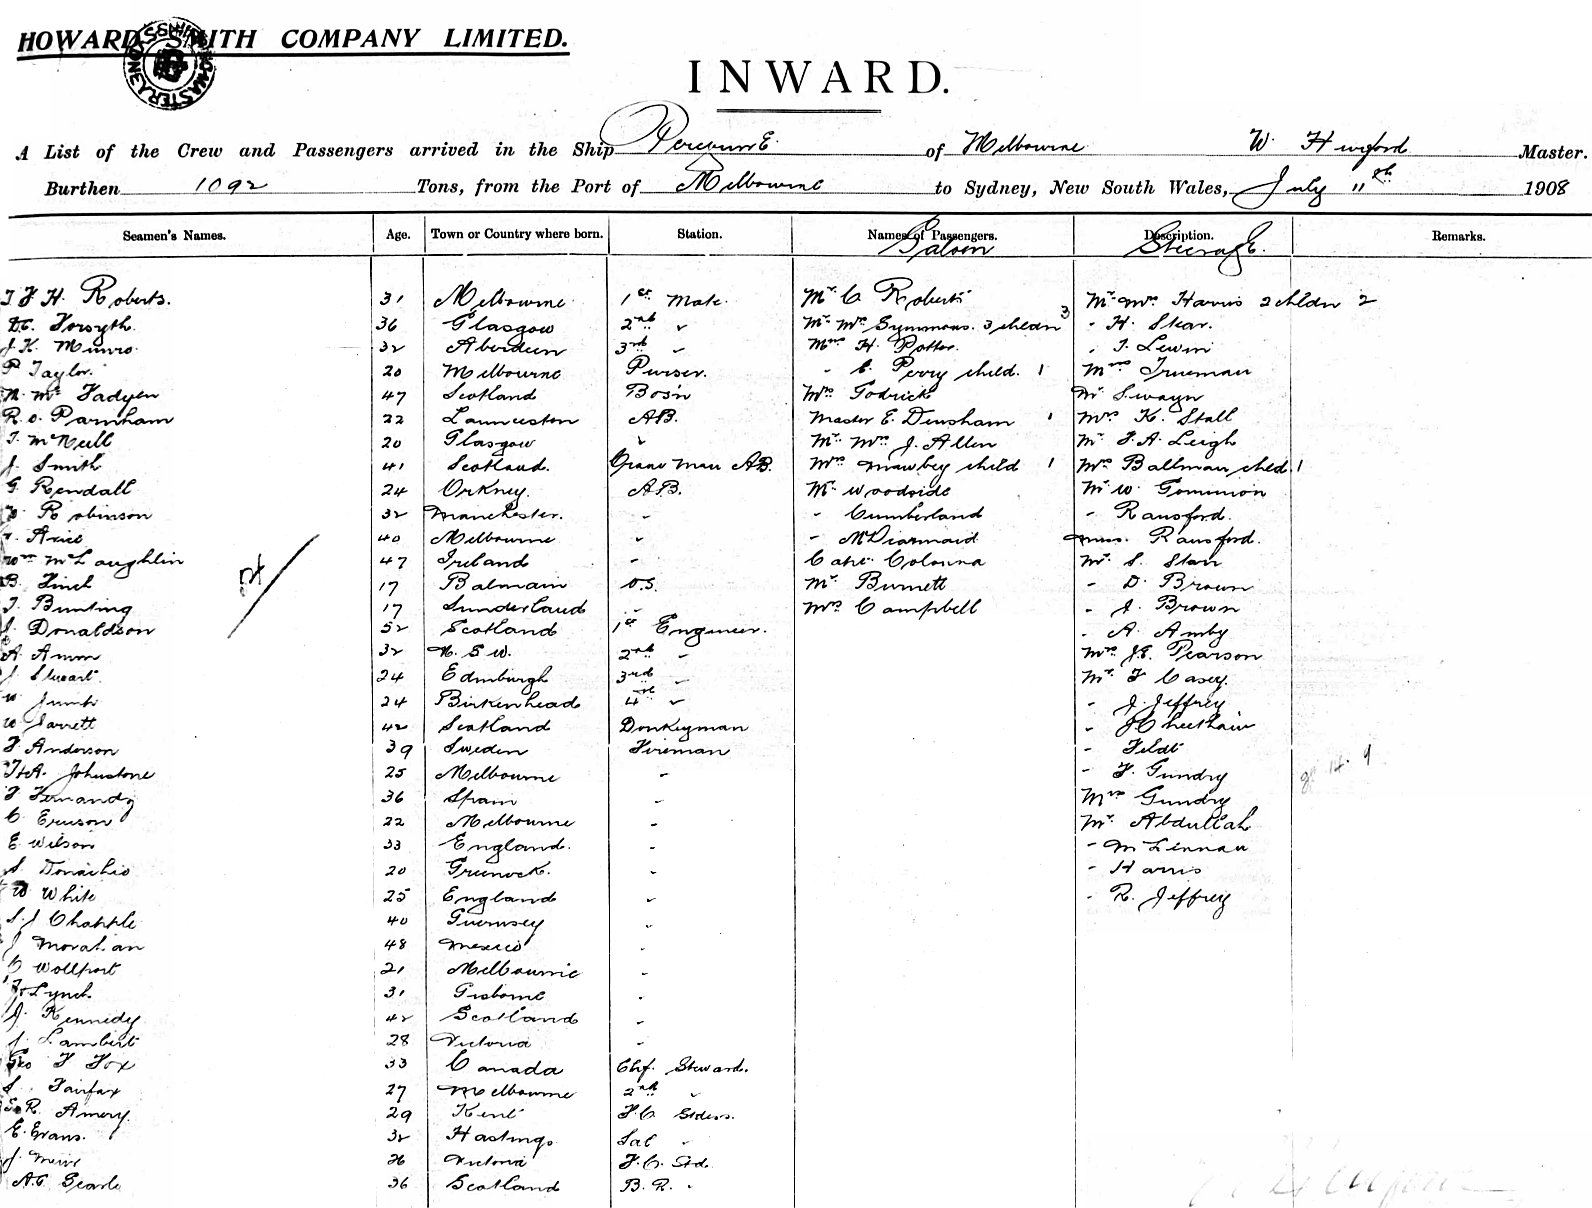 HOWARD SMITH COMPANY LIMITED.
INWARD.
A List of the Crew and Passengers arrived in the Ship of Melbourne W. Master.
Burthen 1092 Tons, from the Port of Melbourne to Sydney, New South Wales, July 11th 1908
Seamen's Names. Age. Town or Country where born. Station. Names of Passengers. Saloon Description. Steerage. Remarks.
H. Roberts. 31 Melbourne 1st Mate. Mr. C Roberts Mr. Mrs Harris 2 childn 2
Forsyth 36 Glasgow 2nd " Mr. Mrs Symmons. 3 childn 3 - H. Skar.
J. K. Munro. 32 Aberdeen 3rd " Mrs H. Potter. " T. Lewin
P Taylor. 20 Melbourne Purser. - C. Perry child. 1 Mrs Trueman
N. Mc Fadyen 47 Scotland Bosn Mrs Todrick Mr Swayn
R. O. Parnham 22 Launceston AB. Master E. Densham 1 Mrs K. Stall
T. McNeill 20 Glasgow " Mr. Mrs. J. Allen Mr F. A. Leigh
J. Smith 41 Scotland. AB. Mrs Mawbey child 1 Mrs Ballman child 1
G. Rendall 24 Orkney. A.B. Mr Woodside Mr W. Gommon
Robinson 32 Manchester. - - Cumberland - Ransford.
40 Melbourne " - McDiarmaid Miss. Ransford.
Wm McLaughlin 47 Ireland - Capt. Colonna Mr. S. Starr
B. Finch 17 Balmain O.S. Mr Burnett - D. Brown
T. Bunting 17 Sunderland .. Mrs Campbell - J. Brown
J. Donaldson 52 Scotland 1st Engineer. - A. Amby
A. Amon 32 N. S W. 2nd - Mrs J.E. Pearson
J. Stuart. 24 Edinburgh 3rd " Mr. F Casey.
24 Birkenhead 4th " - J. Jeffrey
W Jarrett 42 Scotland Donkeyman - J Cheetham
F. Anderson 39 Sweden Fireman - Feldt
H.A. Johnstone 25 Melbourne - - F. Gundry
36 Spain - Mrs Gundry
C. Ericson 22 Melbourne - Mr. Abdullah
E Wilson 33 England. - - McLennan
S. Donachie 20 Greenock. - - Harris
W White 25 England - - R. Jeffrey
S. J Chapple 40 Guernsey -
J 48 Mexico -
C Wollport 21 Melbourne -
Lynch. 31 Gisborne .
J. Kennedy 42 Scotland -
J. Lambert 28 Victoria -
Geo F Fox 33 Canada Chf. Steward.
S. Fairfax 27 Melbourne 2nd "
R. Amery. 29 Kent F.C. Stders.
E. Evans. 32 Hastings Sal "
J. 26 Victoria F.C. Std.
A.E. Searle 36 Scotland B. R. "